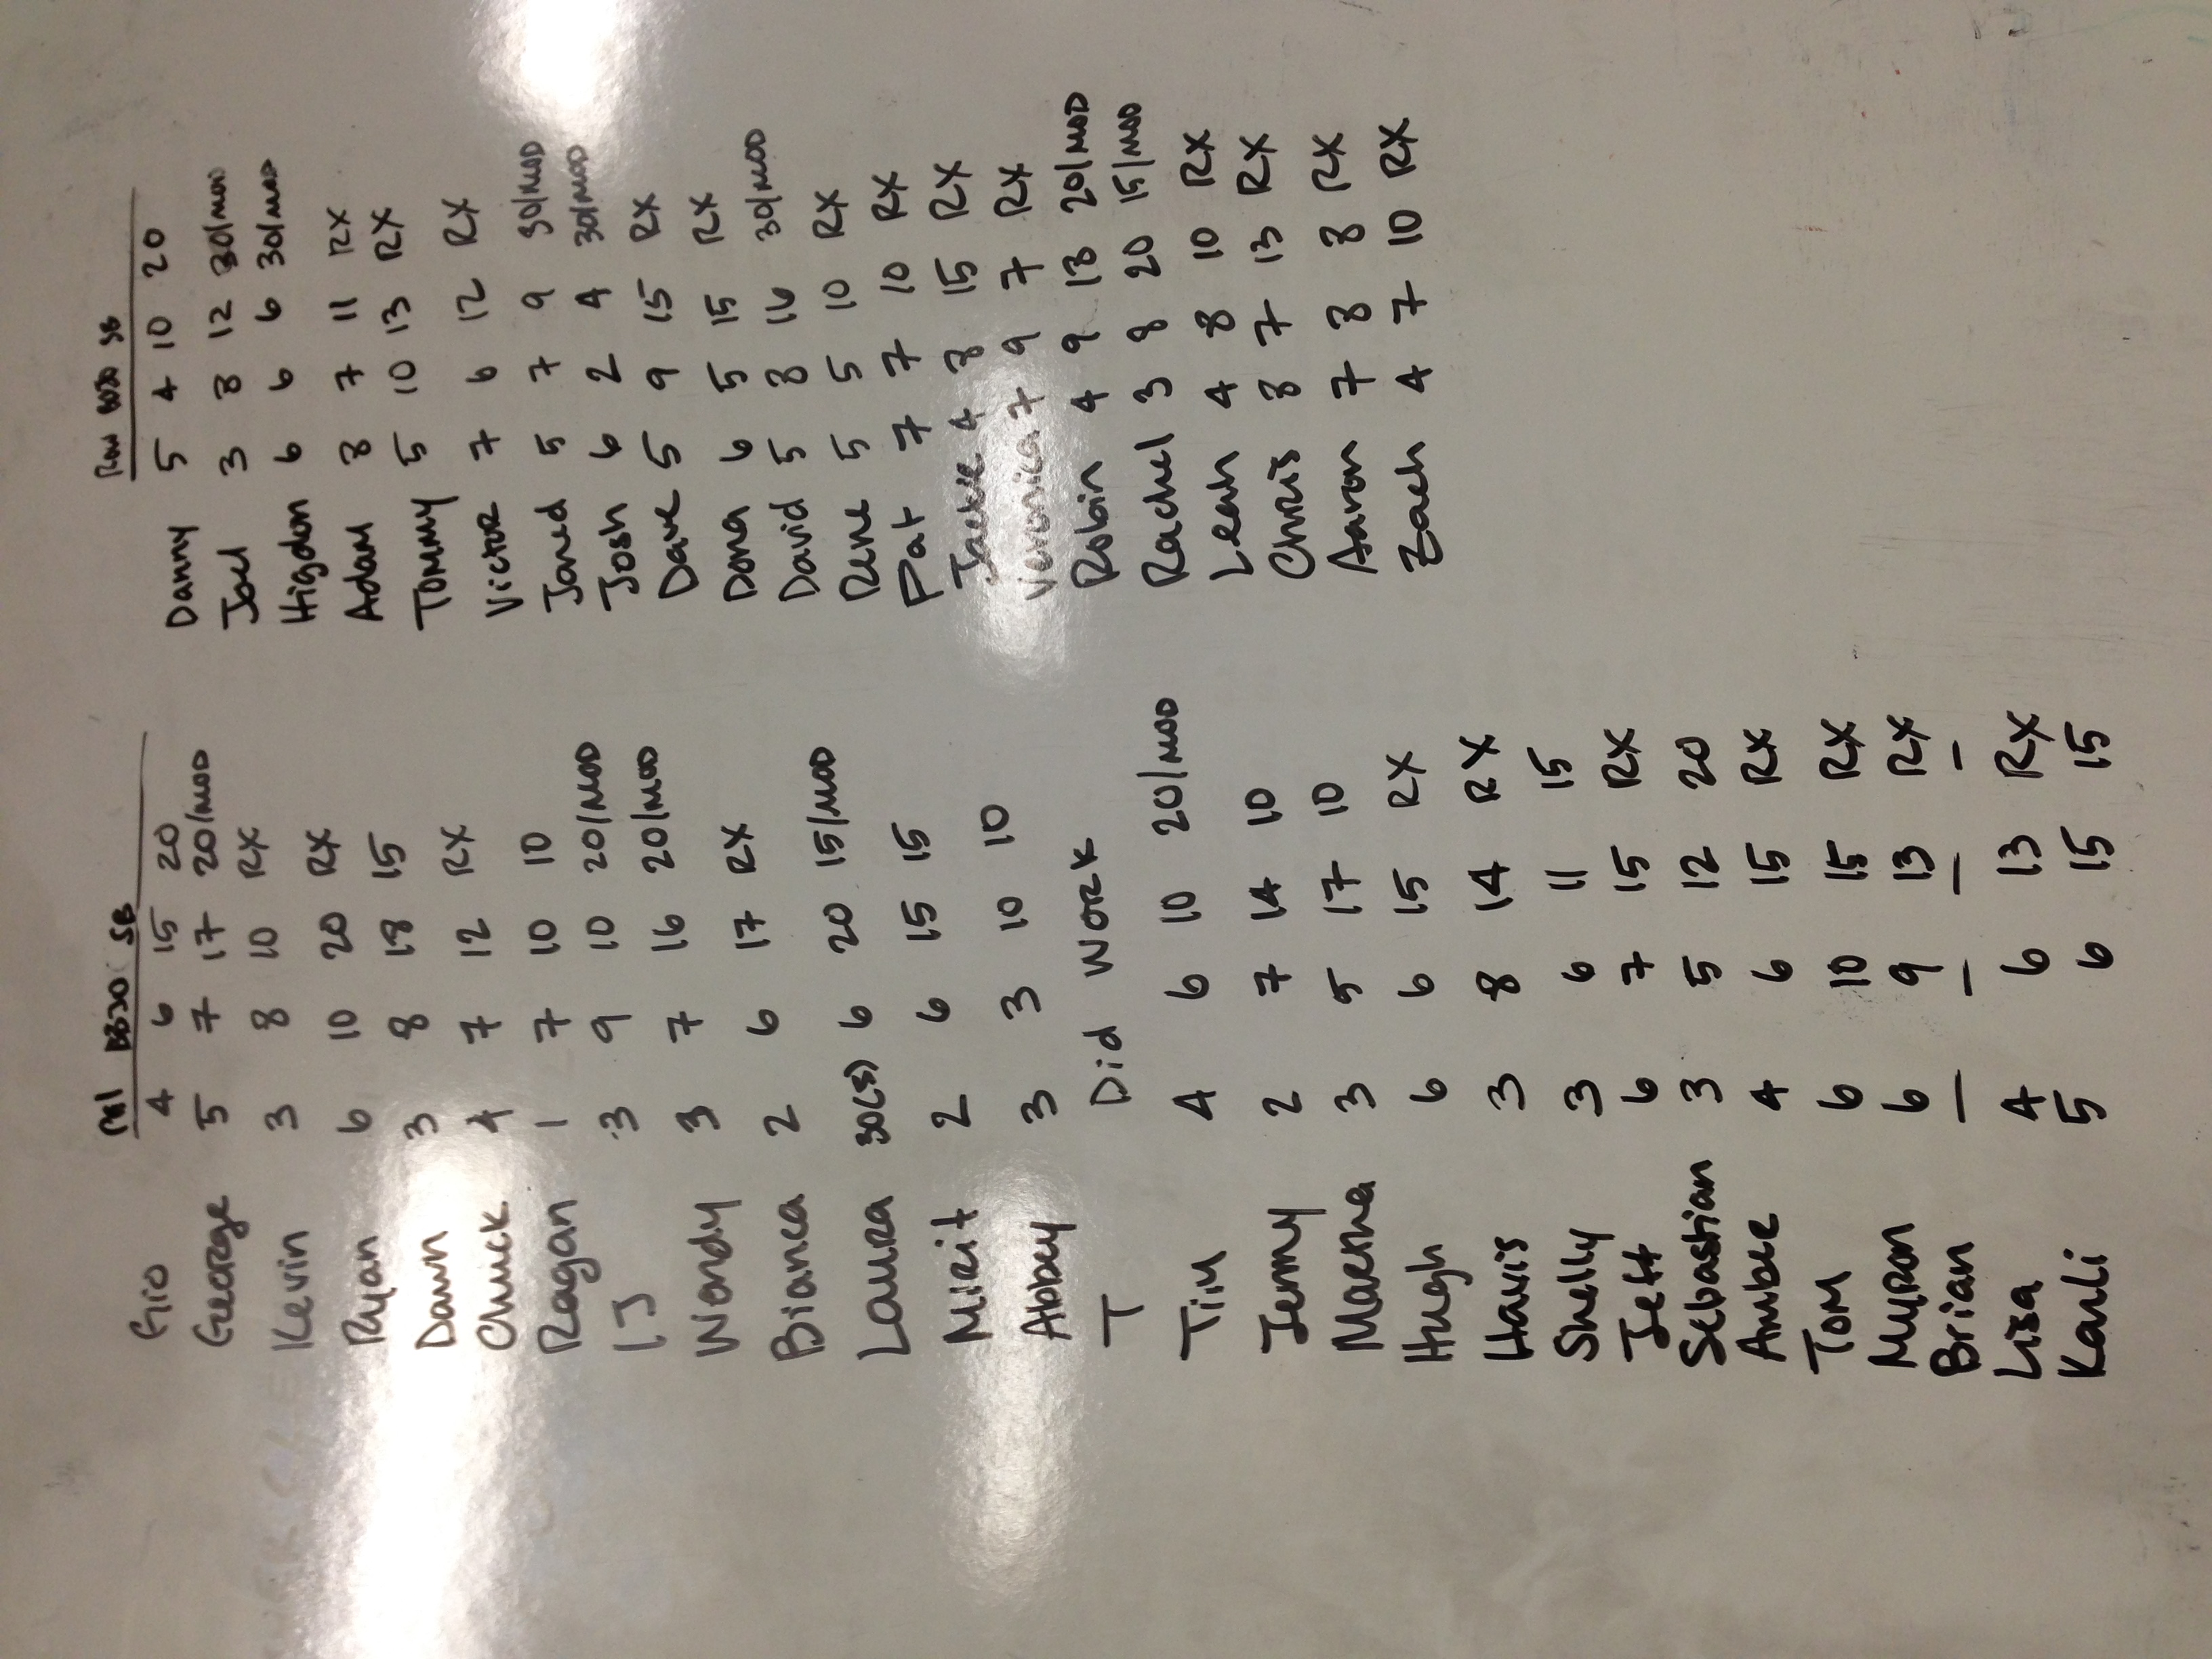 BBJO SB
Gio 4 6 15 20
George 5 7 17 20/MOD
Kevin 3 8 10 RX
Ryan 6 10 20 RX
Dawn 3 8 18 15
Chuck 4 7 12 RX
Ragan 1 7 10 10
LJ 3 9 10 20/MOD
Wendy 3 7 16 20/MOD
Bianca 2 6 17 RX
Laura 30(S) 6 20 15/MOD
Mirit 2 6 15 15
Abbey 3 3 10 10
T Did Work
Tim 4 6 10 20/MOD
Jenny 2 7 14 10
Maerna 3 5 17 10
Hugh 6 6 15 RX
Havis 3 8 14 RX
Shelly 3 6 11 15
Jeff 6 7 15 RX
Sebastian 3 5 12 20
Amber 4 6 15 RX
Tom 6 10 15 RX
Myron 6 9 13 RX
Brian – – – –
Lisa 4 6 13 RX
Karli 5 6 15 15
Row BBJO SB
Danny 5 4 10 20
Joel 3 8 12 30/MOD
Higdon 6 6 6 30/MOD
Adam 8 7 11 RX
Tommy 5 10 13 RX
Victor 7 6 12 RX
Jared 5 7 9 30/MOD
Josh 6 2 4 30/MOD
Dave 5 9 15 RX
Dona 6 5 15 RX
David 5 8 16 30/MOD
Rene 5 5 10 RX
Pat 7 7 10 RX
Jackie 4 8 15 RX
Veronica 7 9 7 RX
Robin 4 9 13 20/MOD
Rachel 3 8 20 15/MOD
Leah 4 8 10 RX
Chris 8 7 13 RX
Aaron 7 8 8 RX
Zach 4 7 10 RX